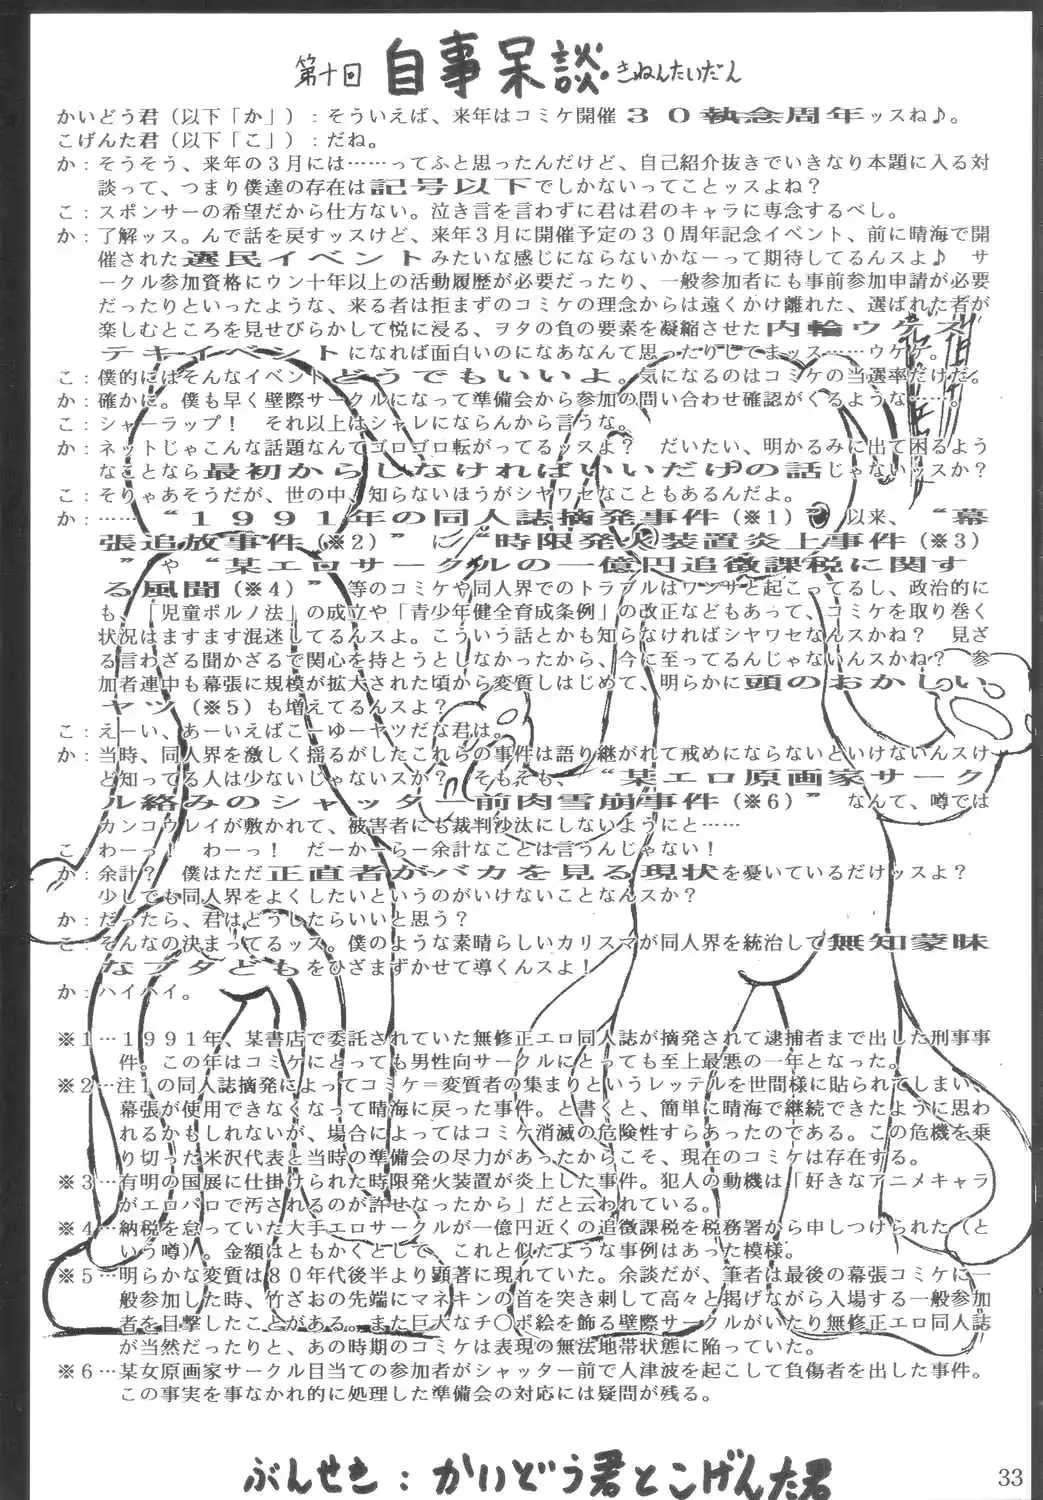 第十回 自事呆談 きねんたいだん
かいどう君（以下「か」）：そういえば、来年はコミケ開催３０執念周年ッスね♪。
こげんた君（以下「こ」）：だね。
か：そうそう、来年の３月には……ってふと思ったんだけど、自己紹介抜きでいきなり本題に入る対
談って、つまり僕達の存在は記号以下でしかないってことッスよね？
こ：スポンサーの希望だから仕方ない。泣き言を言わずに君は君のキャラに専念するべし。
か：了解ッス。んで話を戻すッスけど、来年３月に開催予定の３０周年記念イベント、前に晴海で開
催された選民イベントみたいな感じにならないかなーって期待してるんスよ♪　サ
ークル参加資格にウン十年以上の活動履歴が必要だったり、一般参加者にも事前参加申請が必要
だったりといったような、来る者は拒まずのコミケの理念からは遠くかけ離れた、選ばれた者が
楽しむところを見せびらかして悦に浸る、ヲタの負の要素を凝縮させた内輪ウケス
テキイベントになれば面白いのになあなんて思ったりしてまッス……ウケケ。
こ：僕的にはそんなイベントどうでもいいよ。気になるのはコミケの当選率だけだ。
か：確かに。僕も早く壁際サークルになって準備会から参加の問い合わせ確認がくるような……。
こ：シャーラップ！　それ以上はシャレにならんから言うな。
か：ネットじゃこんな話題なんてゴロゴロ転がってるッスよ？　だいたい、明かるみに出て困るよう
なことなら最初からしなければいいだけの話じゃないッスか？
こ：そりゃあそうだが、世の中、知らないほうがシヤワセなこともあるんだよ。
か：……“１９９１年の同人誌摘発事件（※１）”以来、“幕
張追放事件（※２）”に“時限発火装置炎上事件（※３）
”や“某エロサークルの一億円追徴課税に関す
る風聞（※４）”等のコミケや同人界でのトラブルはワンサと起こってるし、政治的に
も、「児童ポルノ法」の成立や「青少年健全育成条例」の改正などもあって、コミケを取り巻く
状況はますます混迷してるんスよ。こういう話とかも知らなければシヤワセなんスかね？　見ざ
る言わざる聞かざるで関心を持とうとしなかったから、今に至ってるんじゃないんスかね？　参
加者連中も幕張に規模が拡大された頃から変質しはじめて、明らかに頭のおかしい
ヤツ（※５）も増えてるんスよ？
こ：えーい、あーいえばこーゆーヤツだな君は。
か：当時、同人界を激しく揺るがしたこれらの事件は語り継がれて戒めにならないといけないんスけ
ど知ってる人は少ないじゃないスか？　そもそも、“某エロ原画家サーク
ル絡みのシャッター前肉雪崩事件（※６）”　なんて、噂では
カンコウレイが敷かれて、被害者にも裁判沙汰にしないようにと……
こ：わーっ！　わーっ！　だーかーらー余計なことは言うんじゃない！
か：余計？　僕はただ正直者がバカを見る現状を憂いているだけッスよ？
少しでも同人界をよくしたいというのがいけないことなんスか？
か：だったら、君はどうしたらいいと思う？
こ：そんなの決まってるッス。僕のような素晴らしいカリスマが同人界を統治して無知蒙昧
なブタどもをひざまずかせて導くんスよ！
か：ハイハイ。
※１…１９９１年、某書店で委託されていた無修正エロ同人誌が摘発されて逮捕者まで出した刑事事
件。この年はコミケにとっても男性向サークルにとっても至上最悪の一年となった。
※２…注１の同人誌摘発によってコミケ＝変質者の集まりというレッテルを世間様に貼られてしまい、
幕張が使用できなくなって晴海に戻った事件。と書くと、簡単に晴海で継続できたように思わ
れるかもしれないが、場合によってはコミケ消滅の危険性すらあったのである。この危機を乗
り切った米沢代表と当時の準備会の尽力があったからこそ、現在のコミケは存在する。
※３…有明の国展に仕掛けられた時限発火装置が炎上した事件。犯人の動機は「好きなアニメキャラ
がエロパロで汚されるのが許せなったから」だと云われている。
※４…納税を怠っていた大手エロサークルが一億円近くの追徴課税を税務署から申しつけられた（と
いう噂）。金額はともかくとして、これと似たような事例はあった模様。
※５…明らかな変質は８０年代後半より顕著に現れていた。余談だが、筆者は最後の幕張コミケに一
般参加した時、竹ざおの先端にマネキンの首を突き刺して高々と掲げながら入場する一般参加
者を目撃したことがある。また巨大なチ〇ポ絵を飾る壁際サークルがいたり無修正エロ同人誌
が当然だったりと、あの時期のコミケは表現の無法地帯状態に陥っていた。
※６…某女原画家サークル目当ての参加者がシャッター前で人津波を起こして負傷者を出した事件。
この事実を事なかれ的に処理した準備会の対応には疑問が残る。
ぶんせき：かいどう君とこげんた君
33